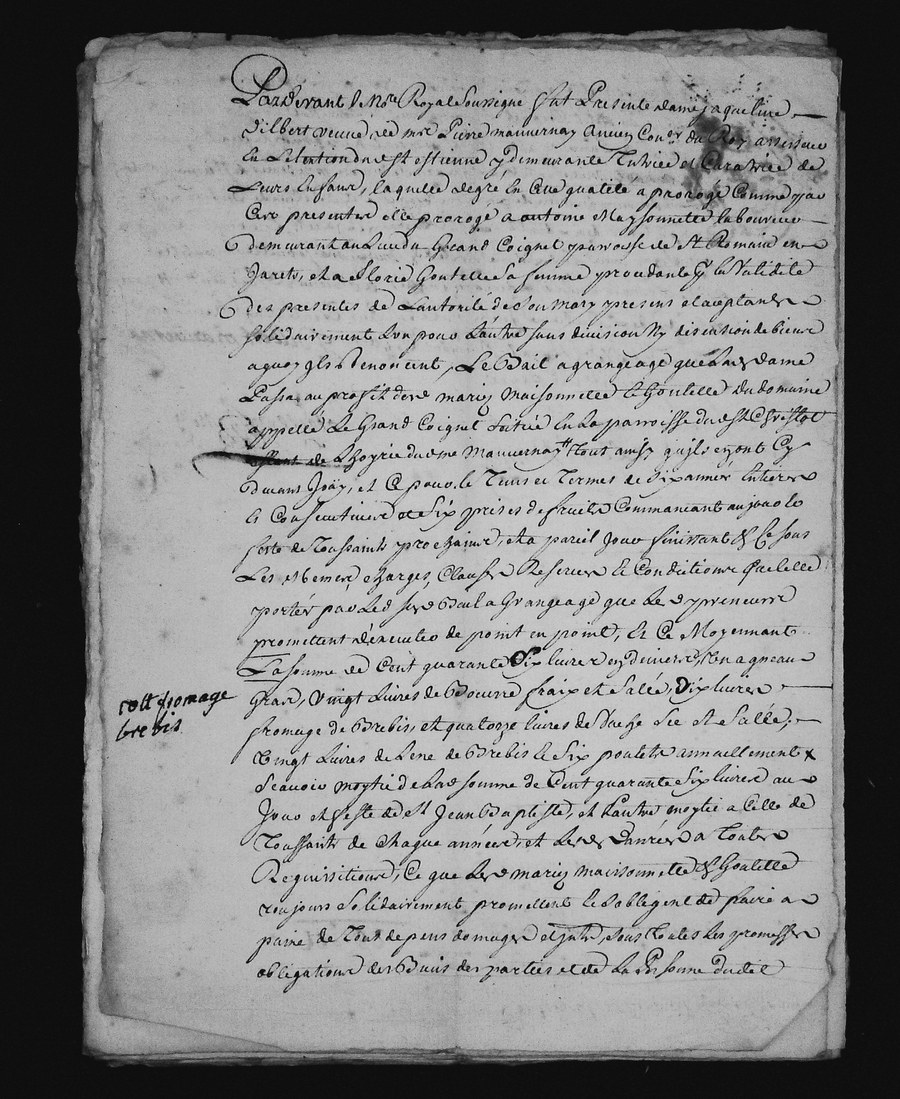 Pardevant le No.re Royal Soussigné fut Presente dame Jaqueline
Dilbert veuve de m.re Pierre mauvernay Ancien Con.er du Roy
En Lelection de St estienne y demeurante Tutrice et Curatrice de
Leurs Enfans, laquelle de gré En Cette qualité a prorogé Comme par
Ces presentes elle proroge a antoine Maysonnette laboureur
demeurant au Lieu du Grand Coignet parroisse de St Romain en
Jarets, et a Florie Goutelle Sa femme procedante p.r la Validité
des presentes de Lautorité de Son Mary presens et acceptants
Solidairement Lun pour Lautre sans division Ny discution de biens
a quoy ils Renoncent, Le Bail a grangeage que Lad. dame
Passa au profit desd. mariez Maisonnette et Goutelle du domaine
appellé Le Grand Coignet Situé En La parroisse dud. St Christot
Lhoyrie dud. sr Mauvernay Tout ainsy qu'ils en ont Cy
devant Jouy, et Ce pour le Tems et Termes de Six années Entieres
Et Consecutives et Six prises de fruits Commencant au jour
feste de Toussaints prochaines, et a pareil Jour finissant & Ce sous
Les mêmes charges, Clauses Reserves Et Conditions
portés par Led. Bail a Grangeage que Les d. preneurs
promettent d'executer de point en point, Et Ce Moyennant
La somme de Cent quarante Six livres en deniers, Un agneau
Gras, Vingt Livres de Beurre fraix et Salée, Dix livres
fromage de Brebis, et quatorze livres de Vache Sec et Salée,
Vingt Livres de Lene de Brebis et Six poulets annuellement
Scavoir moytié de Lad. somme de Cent quarante Six livres au
Jour et feste de St Jean Baptiste, et Lautre moytié a Celle de
Toussaints de Chaque années, et Lesd. Danrées a Toutes
Requisitions, Ce que Lesd. mariez maisonnette & Goutelle
toujours Solidairement promettent Et Soblegent de faire a
paine de Tout depens domages et jnts, sous Toutes Les promesses
obligations des Biens des parties et de La Personne dudit
colt fromage
brebis